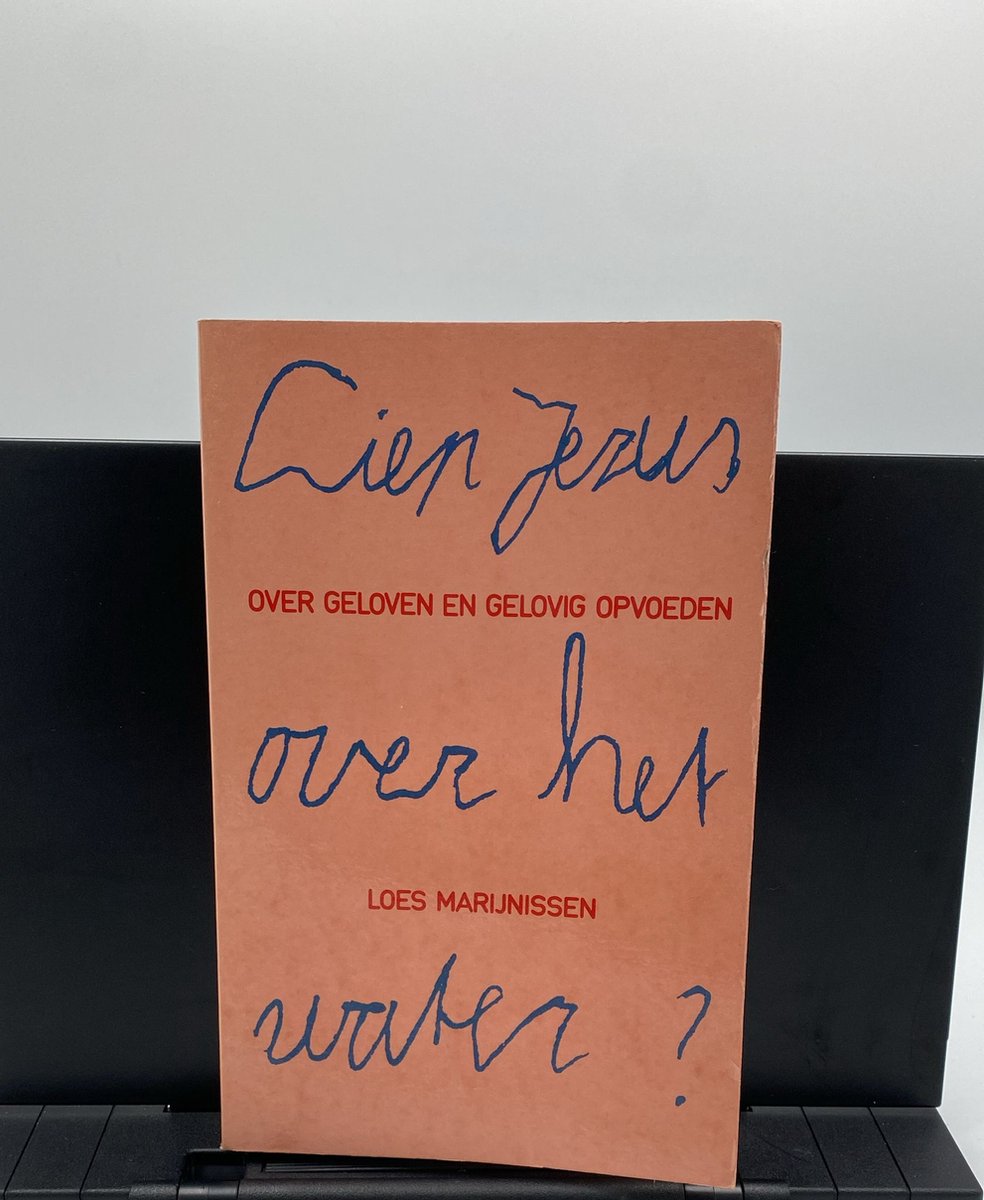 Liep Jezus
OVER GELOVEN EN GELOVIG OPVOEDEN
over het
LOES MARIJNISSEN
water ?